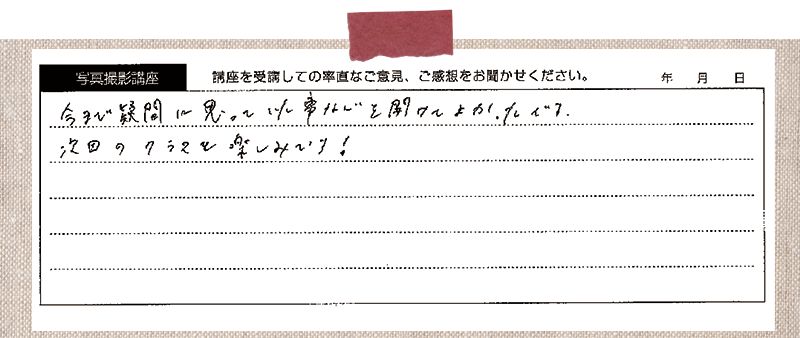 写真撮影講座 講座を受講しての率直なご意見、ご感想をお聞かせください。 年 月 日
今まで疑問に思っていた事などを聞けてよかったです。
次回のクラスも楽しみです!